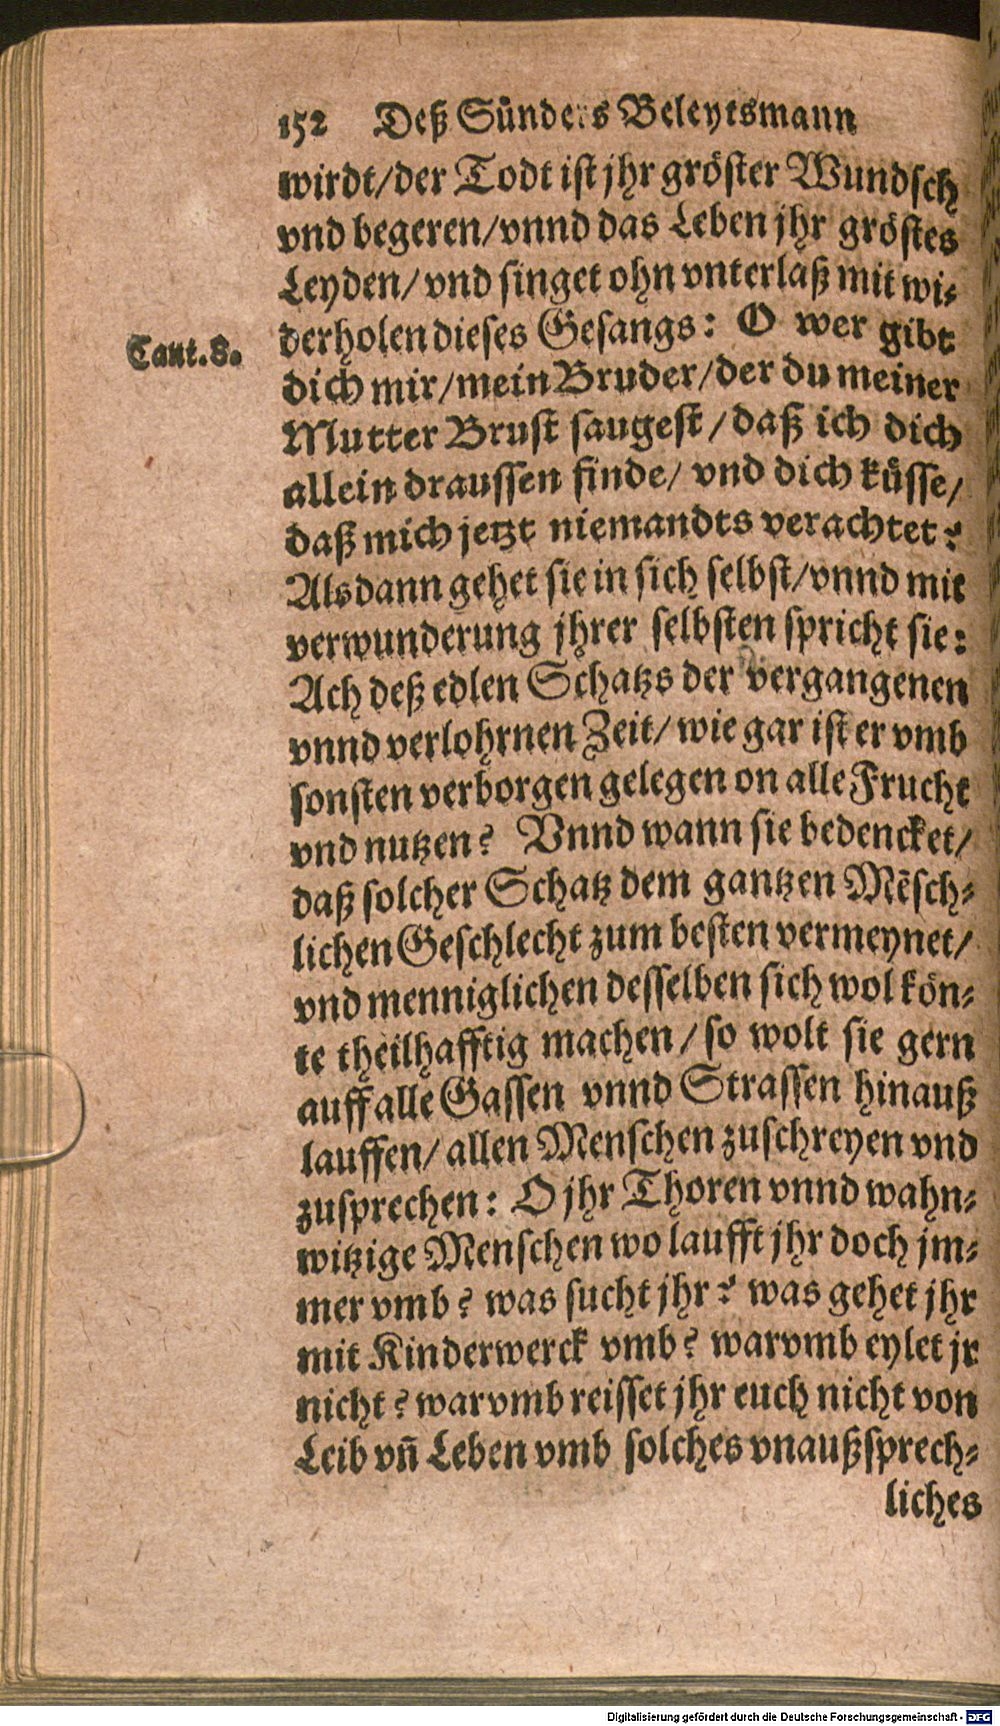 152 Deß Sünders Beleytsmann
wirdt/der Todt ist jhr gröster Wundsch
vnd begeren/vnnd das Leben jhr gröstes
Leyden/ vnd singet ohn vnterlaß mit wi-
derholen dieses Gesangs: O wer gibt
Cant. 8.
dich mir/mein Bruder/der du meiner
Mutter Brust saugest/daß ich dich
allein draussen finde/ vnd dich küsse/
daß mich jetzt niemandts verachtet?
Alsdann gehet sie in sich selbst/vnnd mit
verwunderung jhrer selbsten spricht sie:
Ach deß edlen Schatzs der vergangenen
vnnd verlohrnen Zeit/ wie gar ist er vmb
sonsten verborgen gelegen on alle Frucht
vnd nutzen? Vnnd wann sie bedencket/
daß solcher Schatz dem gantzen Mẽsch-
lichen Geschlecht zum besten vermeynet/
vnd menniglichen desselben sich wol kön-
te theilhafftig machen/so wolt sie gern
auff alle Gassen vnnd Strassen hinauß
lauffen/ allen Menschen zuschreyen vnd
zusprechen: O jhr Thoren vnnd wahn-
witzige Menschen wo laufft jhr doch jm-
mer vmb? was sucht jhr? was gehet jhr
mit Kinderwerck vmb? warvmb eylet jr
nicht? warvmb reisset jhr euch nicht von
Leib vñ Leben vmb solches vnaußsprech-
liches
Digitalisierung gefördert durch die Deutsche Forschungsgemeinschaft - DFG